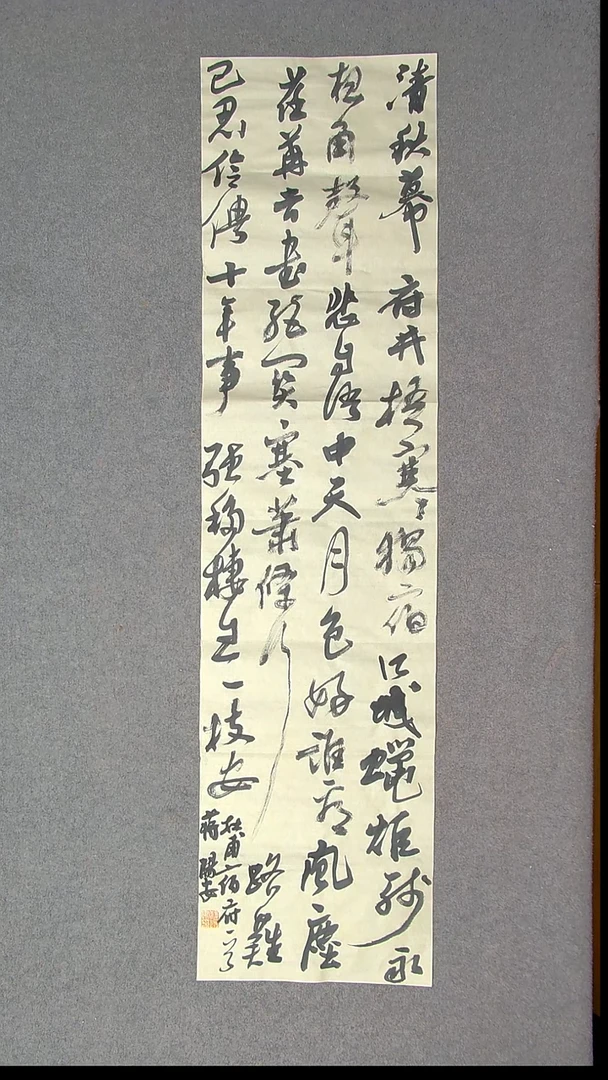 清秋幕府井梧寒獨宿江城蠟炬殘永
夜角聲悲自語中天月色好誰看風塵
荏苒音書絕關塞蕭條行路難
已忍伶俜十年事強移棲息一枝安
杜甫宿府一首
蒋